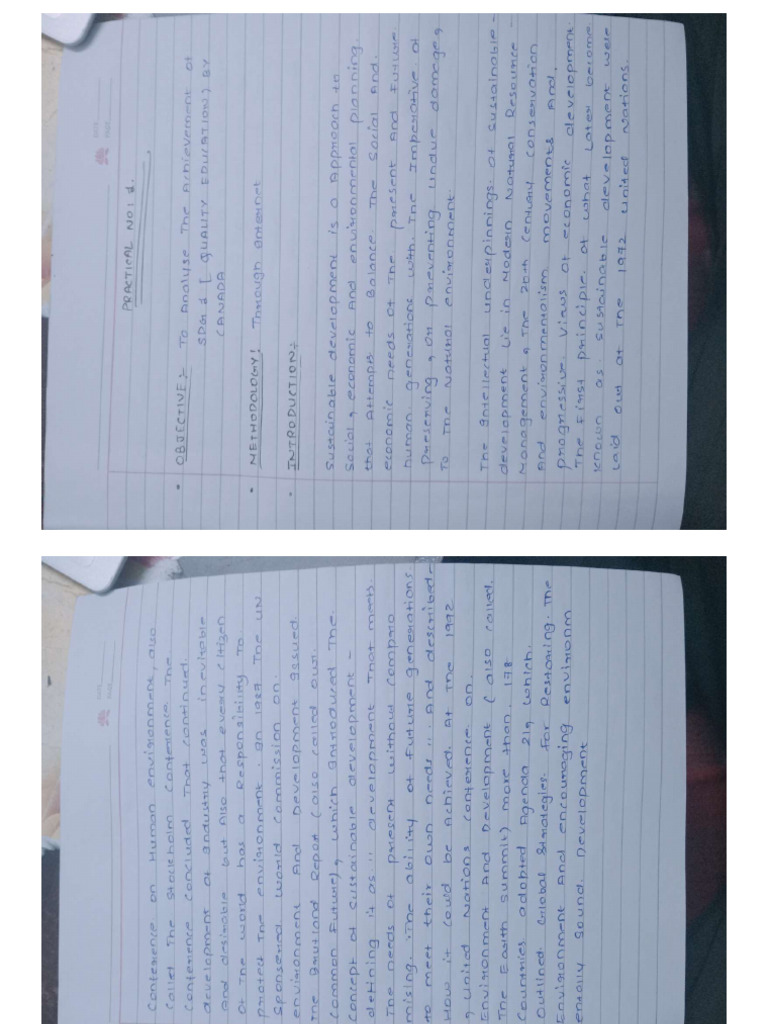 PRACTICAL NO: 1.
• OBJECTIVE :- To Analyse The Achievement of
SDG 4 [ QUALITY EDUCATION ] BY
CANADA
• METHODOLOGY : Through Internet
• INTRODUCTION :-
Sustainable development is a Approach to
Social, economic And environmental planning.
that Attempts to Balance. The Social And.
economic needs of The present And Future.
human generations with. The Imperative of
preserving, or preventing undue damage,
To The Natural environment.
The Intellectual underpinnings. of sustainable-
development Lie in Modern Natural Resource-
Management, The 20th Century conservation
And environmentalism movements And.
progressive. Views of economic development.
The First principle. of what Later become
known as. sustainable development were
Laid out at The 1972 United Nations.
Conference on Human environment, also
Called The Stockholm Conference. The
Conference Concluded That continued.
development of Industry was inevitable
And desirable but Also that every Citizen
of the World has a Responsibility To
protect The environment. In 1987 The UN
Sponsered World Commission on.
environment And Development Issued.
The Brutland Report (also called own.
Common Future), which Introduced The.
Concept of Sustainable development-
defining it as " development That meets.
The needs of present without compro
mising. The ability of Future generations.
to meet their own needs " And described-
How it could be Achieved. At The 1992
, United Nations Conference on.
Environment And Development (also called.
The Earth Summit) more than. 178
Countries adopted Agenda 21, which.
Outlined. Global Strategies. For Restoring. The
Environment And encouraging environm
entally Sound. Development